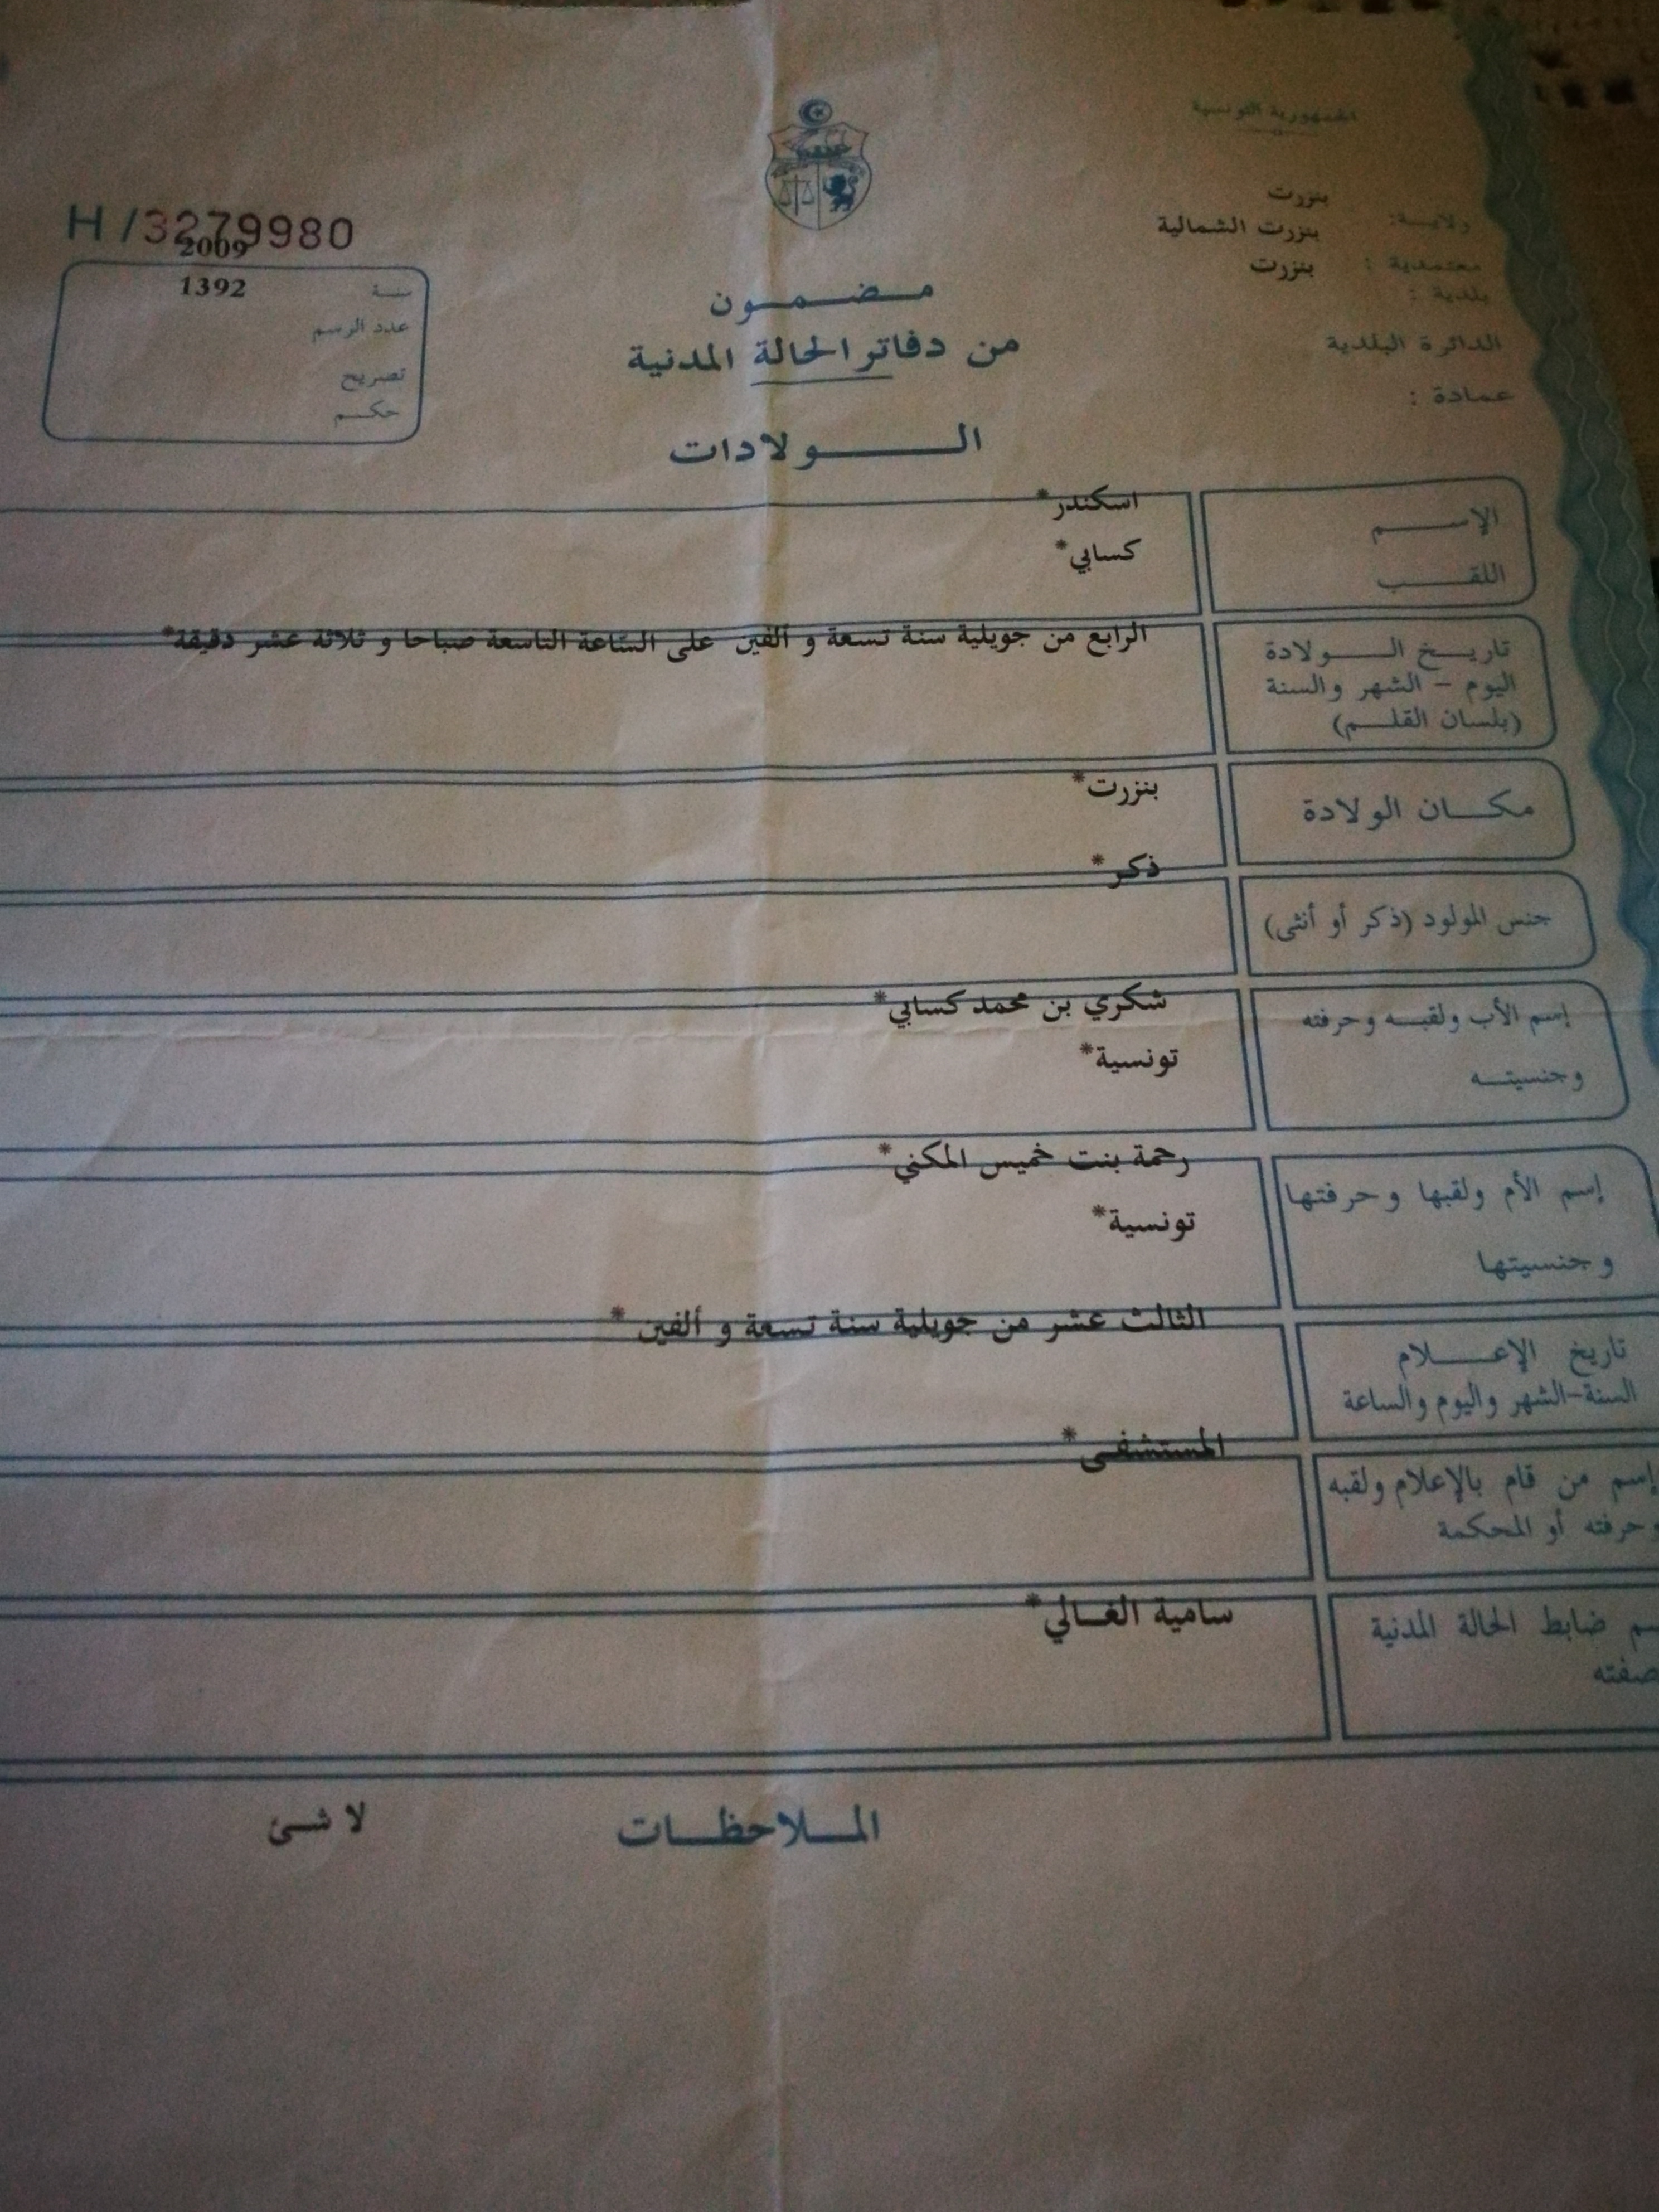 الجمهورية التونسية
ولايـة: بنزرت
معتمدية : بنزرت الشمالية
بلدية : بنزرت
الدائرة البلدية
عمادة :
H /3279980
2009
سنة 1392
عدد الرسم
تصريح
حكم
مضمون
من دفاتر الحالة المدنية
الولادات
الإسم اسكندر*
اللقب كسابي*
تاريخ الولادة الرابع من جويلية سنة تسعة و ألفين على السّاعة التاسعة صباحا و ثلاثة عشر دقيقة*
اليوم - الشهر والسنة
(بلسان القلم)
مكان الولادة بنزرت*
ذكر*
جنس المولود (ذكر أو أنثى)
إسم الأب ولقبه وحرفته شكري بن محمد كسابي*
وجنسيته تونسية*
إسم الأم ولقبها وحرفتها رحمة بنت خميس المكني*
وجنسيتها تونسية*
تاريخ الإعلام الثالث عشر من جويلية سنة تسعة و ألفين *
السنة-الشهر واليوم والساعة
المستشفى*
إسم من قام بالإعلام ولقبه
وحرفته أو المحكمة
ضابط الحالة المدنية سامية الغالي*
الملاحظات لا شئ